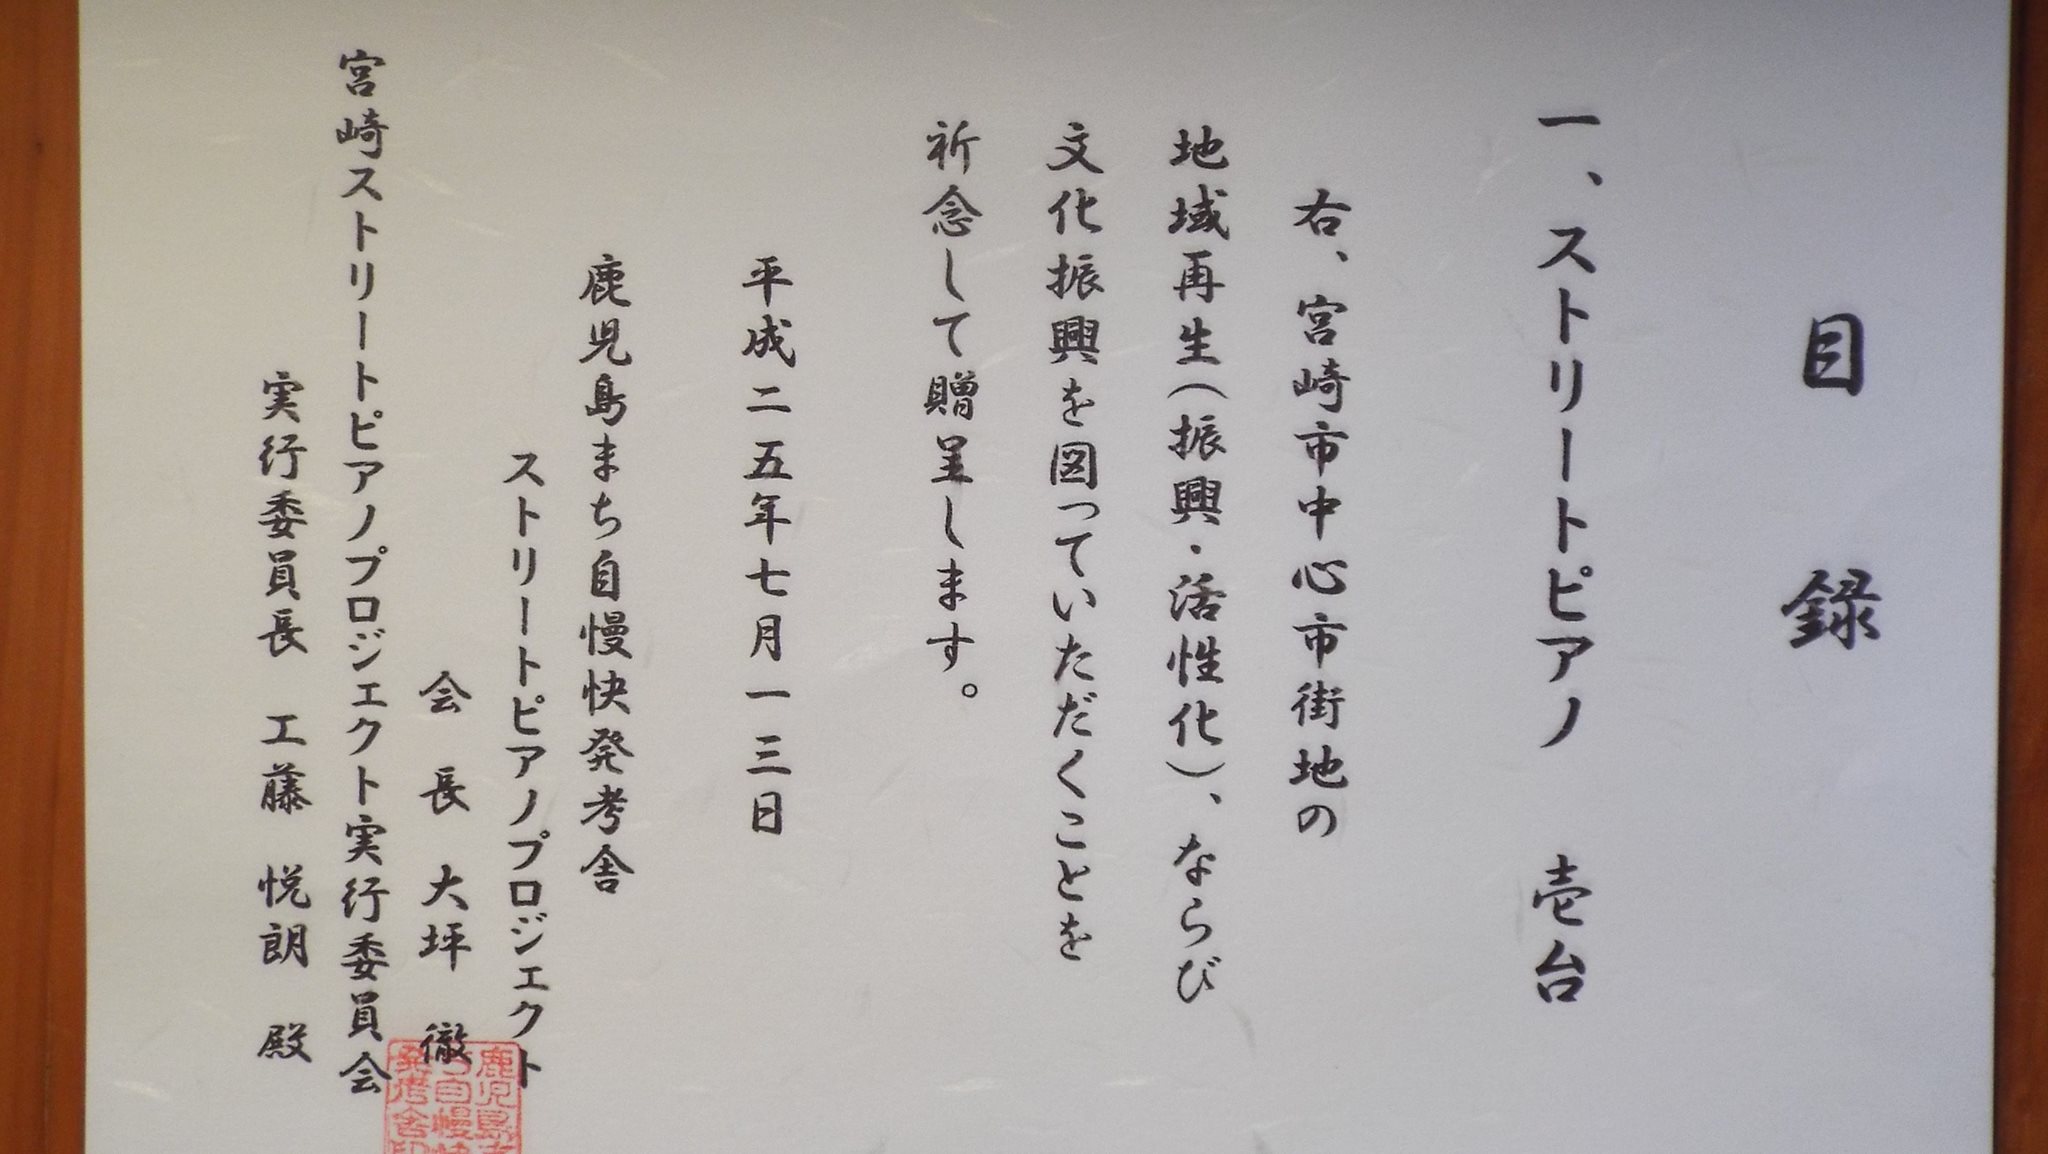 目録
一、ストリートピアノ 壱台
右、宮崎市中心市街地の
地域再生（振興・活性化）、ならび
文化振興を図っていただくことを
祈念して贈呈します。
平成二五年七月一三日
鹿児島まち自慢快発考舎
ストリートピアノプロジェクト
会長 大坪 徹
宮崎ストリートピアノプロジェクト実行委員会
実行委員長 工藤 悦朗 殿